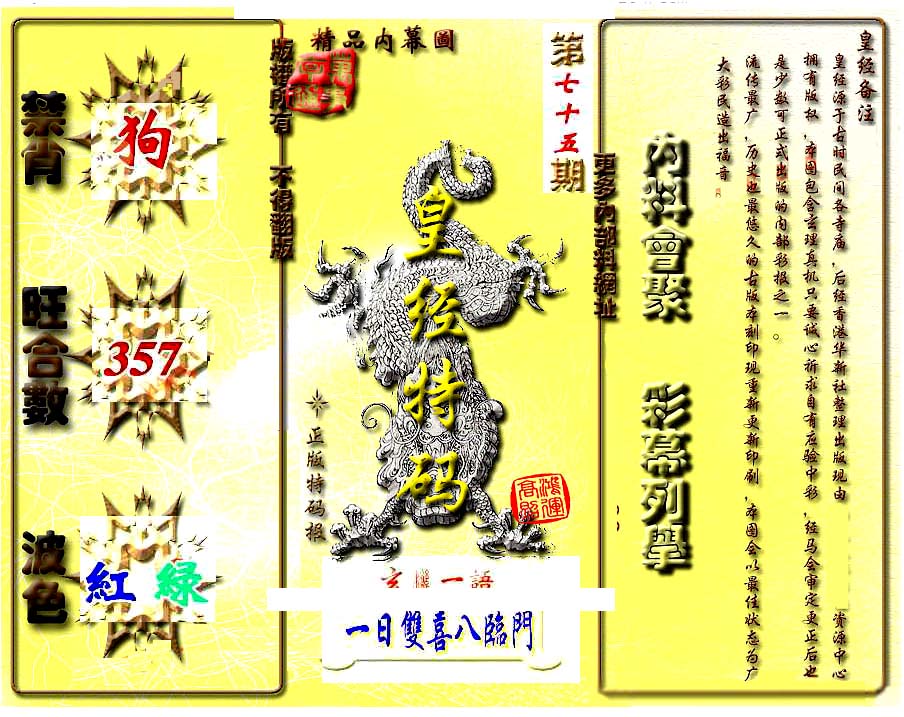 精品內幕圖
版權所有 不得翻版
第七十五期
更多內部料網址
禁肖
狗
旺合數
357
波色
紅 緑
皇经特码
正版特码报
鴻運高照
玄機一語
一日雙喜八臨門
內料會聚 彩幕列舉
皇经备注
皇经源于古时民间各寺庙，后经香港华新社整理出版现由 资源中心
拥有版权，本图包含玄理真机只要诚心祈求自有应验中彩，经马会审定更正后也
是少数可正式出版的内部彩报之一。
流传最广，历史也最悠久的古版本刻印现重新更新印刷，本图会以最佳状态为广
大彩民造出福音